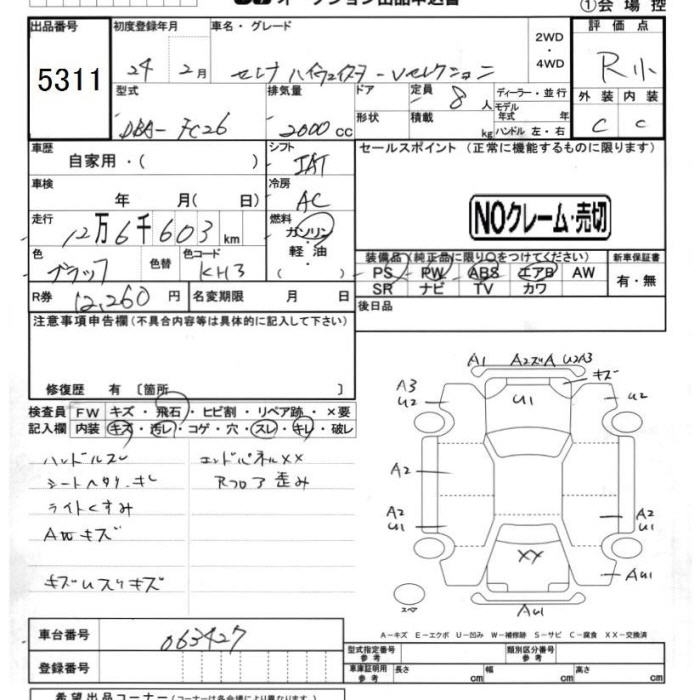 オークション出品申込書 ①会場控
出品番号 初度登録年月 車名・グレード 2WD・4WD 評価点
5311 24年 2月 セレナ ハイウェイスター Vセレクション R小
型式 排気量 ドア 定員 8人 ディーラー・並行 外装 内装
DBA-FC26 2000cc 形状 積載 kg モデル年式 年 ハンドル 左・右 C C
車歴 自家用・( ) シフト IAT セールスポイント (正常に機能するものに限ります)
車検 年 月( 日) 冷房 AC
NOクレーム・売切
走行 12万6千603km 燃料 ガソリン・軽油・( )
色 ブラック 色替 色コード KH3
装備品(純正品に限り○をつけてください) 新車保証書
PS PW ABS エアB AW 有・無
SR ナビ TV カワ
R券 12,260円 名変期限 月 日 後日品
注意事項申告欄(不具合内容等は具体的に記入して下さい)
修復歴 有 〔箇所 〕
検査員記入欄 FW キズ・飛石・ヒビ割・リペア跡・×要
内装 キズ・汚レ・コゲ・穴・スレ・キレ・破レ
ハンドルスレ エンドパネルXX
シートヘタリ・キレ Rフロア歪み
ライトくすみ
AWキズ
キズUスリキズ
A1 A2ズA U2A3
キズ
A3 U2 U1 U2
A2
A2 U1 A2 U1
XX
AU1
スペア AU1
A-キズ E-エクボ U-凹み W-補修跡 S-サビ C-腐食 XX-交換済
車台番号 063427
登録番号
型式指定番号 参考 類別区分番号 参考
車庫証明用 参考 長さ cm 幅 cm 高さ cm
希望出品コーナー(コーナーは各会場により異なります)